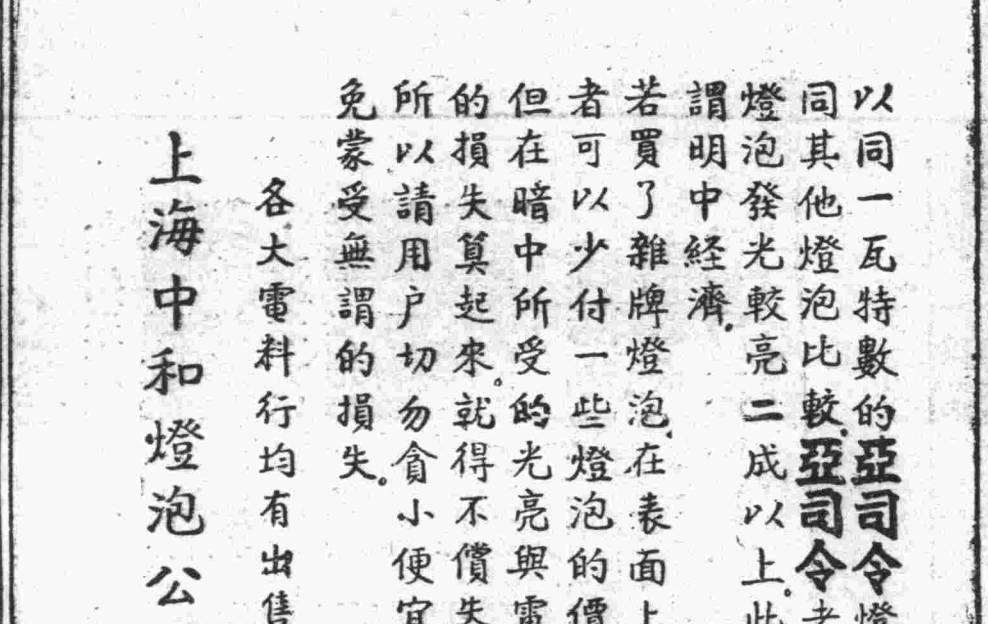 以同一瓦特數的亞司令燈
同其他燈泡比較.亞司令老
燈泡發光較亮二成以上。此
謂明中経濟.
若買了雜牌燈泡、在表面上
者可以少付一些燈泡的價
但在暗中所受的光亮與電
的損失算起來。就得不償失
所以請用户切勿貪小便宜
免蒙受無謂的損失。
各大電料行均有出售
上海中和燈泡公